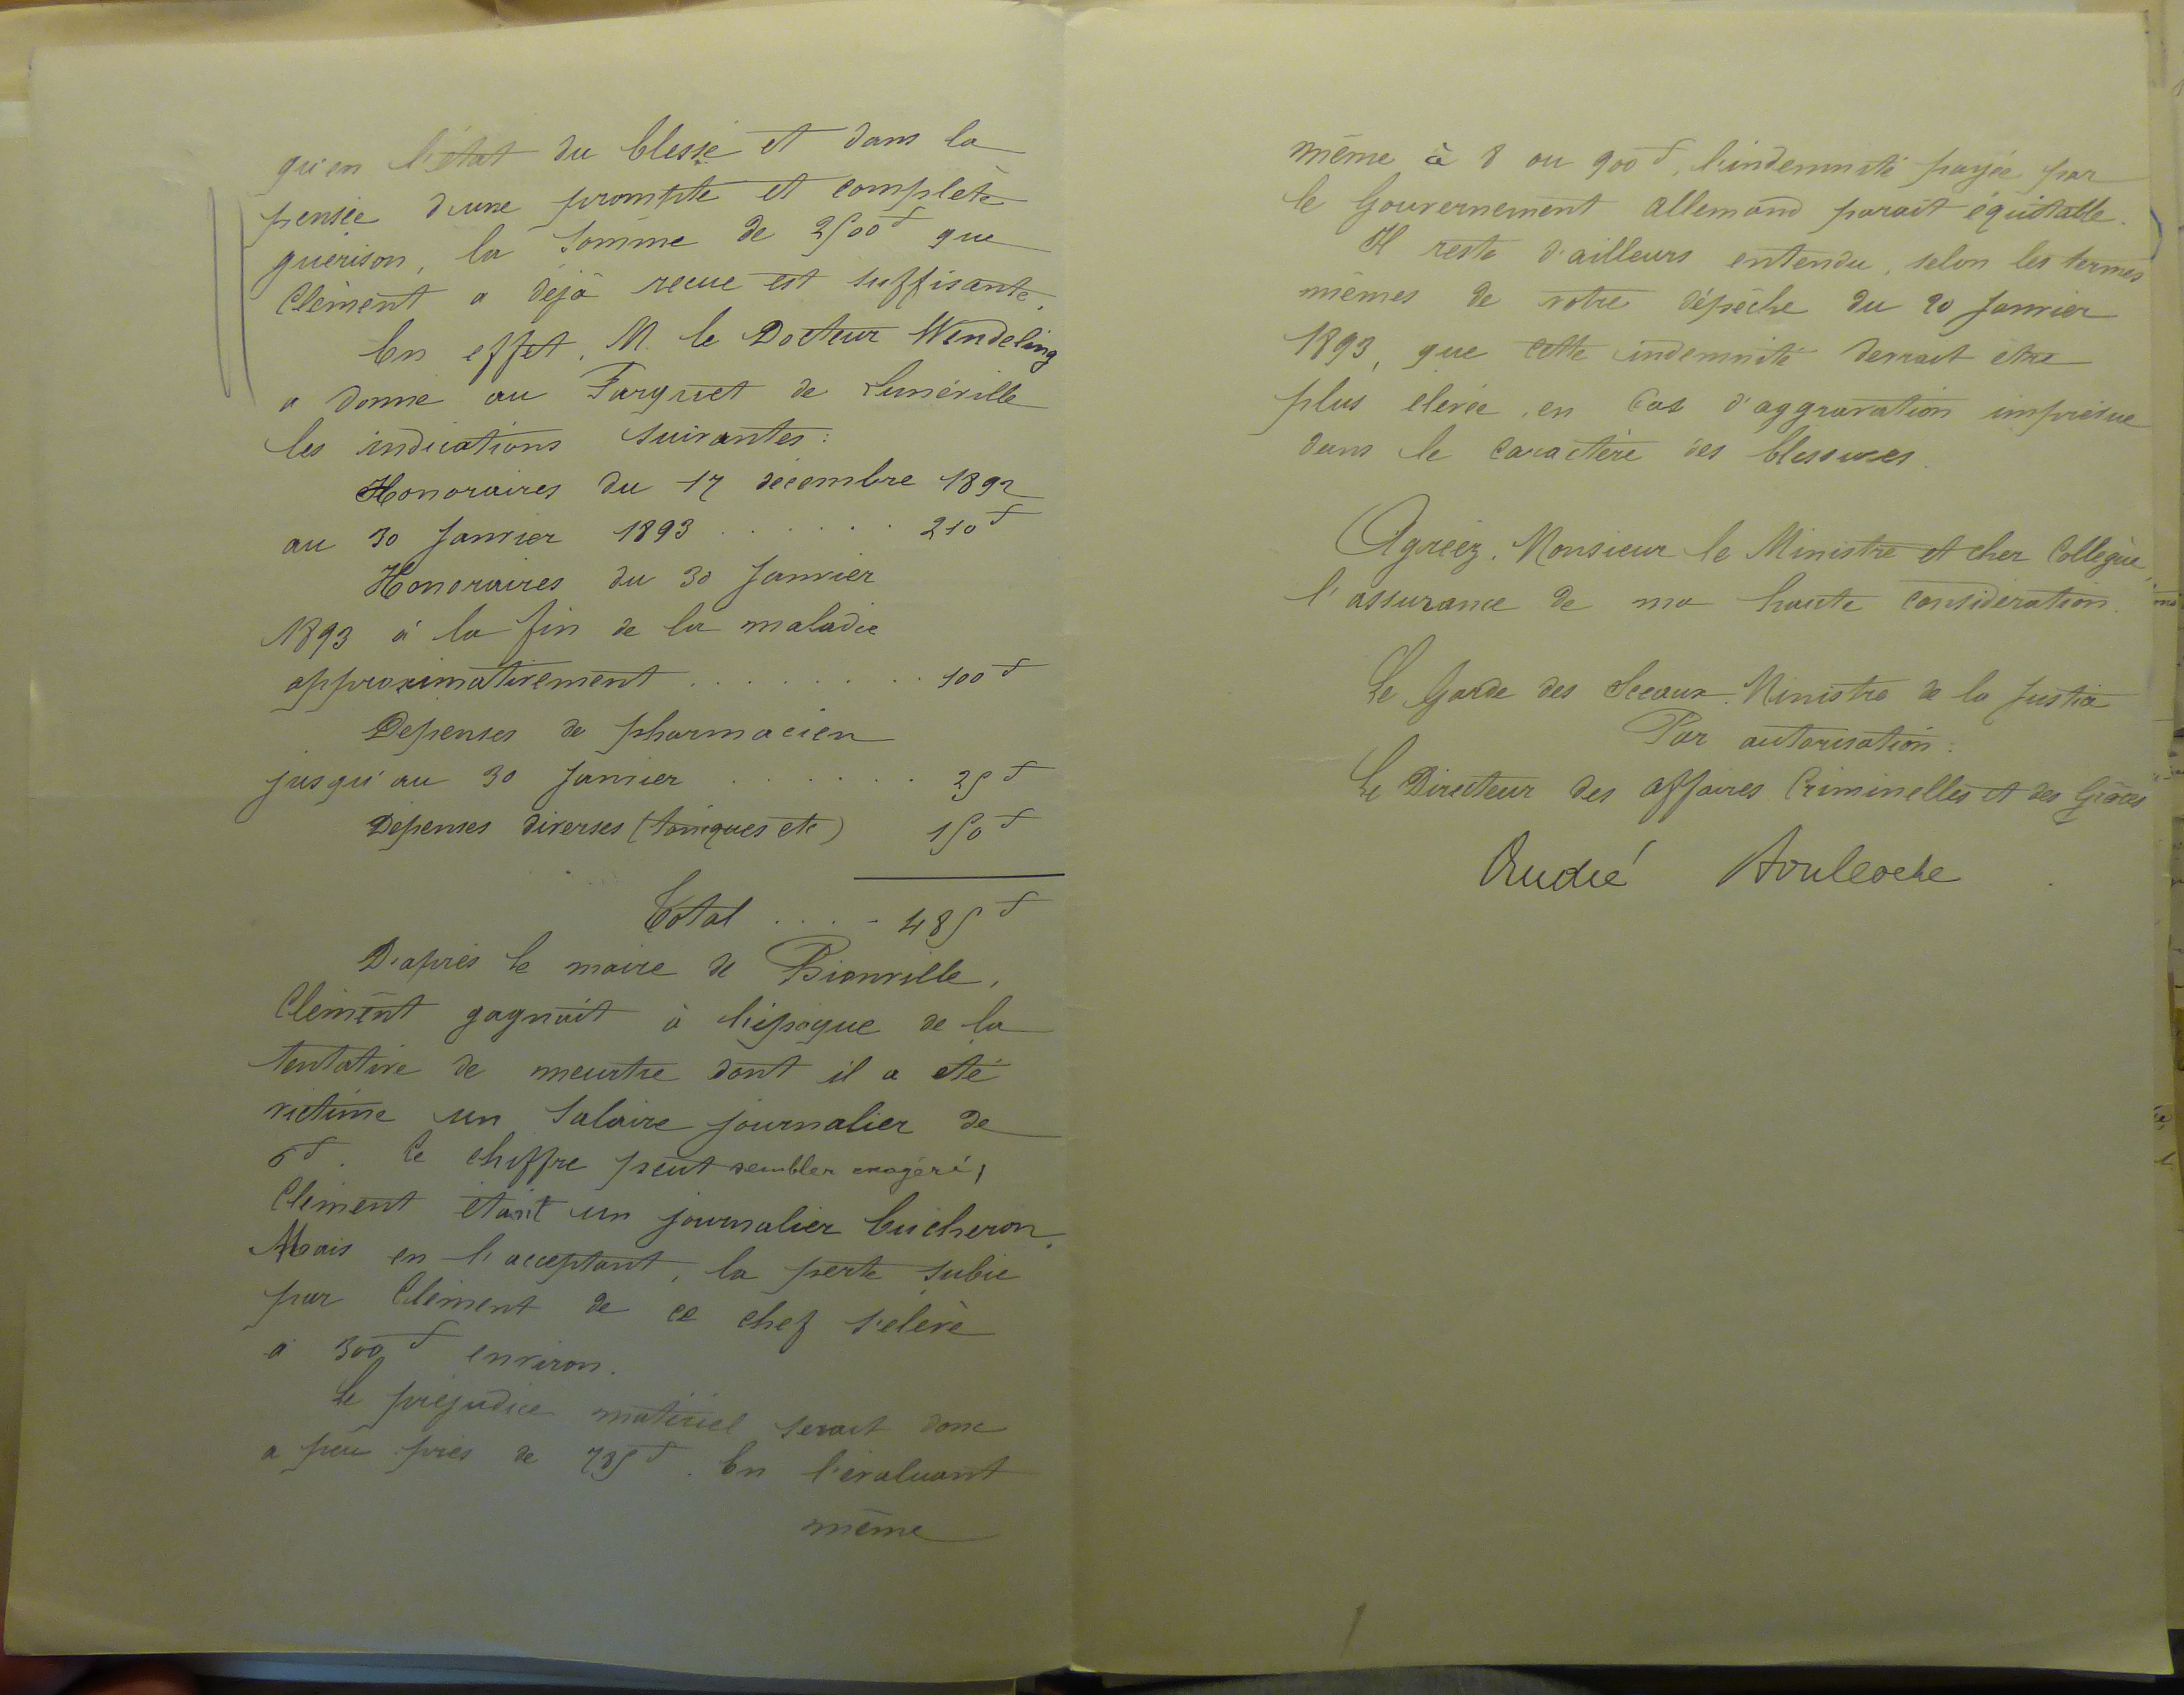 qu'en l'état du blessé et dans la
pensée d'une prompte et complète
guérison, la somme de 2500 f que
Clément a déjà reçue est suffisante.
En effet, M. le Docteur Wendeling
a donné au Parquet de Lunéville
les indications suivantes:
Honoraires du 17 décembre 1892
au 30 Janvier 1893 . . . . . . 210 f
Honoraires du 30 Janvier
1893 à la fin de la maladie
approximativement . . . . . . . . . 100 f
Dépenses de pharmacien
jusqu'au 30 Janvier . . . . . . . 25 f
Dépenses diverses (toniques etc) 150 f
Total . . . . 485 f
D'après le maire de Bionville,
Clément gagnait à l'époque de la
tentative de meurtre dont il a été
victime un salaire journalier de
6 f. Ce chiffre peut sembler exagéré,
Clément étant un journalier bûcheron.
Mais en l'acceptant, la perte subie
par Clément de ce chef s'élève
à 300 f environ.
Le préjudice matériel serait donc
à peu près de 785 f. En l'évaluant
même
même à 8 ou 900 f, l'indemnité payée par
le Gouvernement Allemand parait équitable.
Il reste d'ailleurs entendu, selon les termes
mêmes de votre dépêche du 20 Janvier
1893, que cette indemnité devrait être
plus élevée, en cas d'aggravation imprévue
dans le caractère des blessures.
Agréez, Monsieur le Ministre et cher Collègue,
l'assurance de ma haute considération.
Le Garde des Sceaux, Ministre de la Justice
Par autorisation:
Le Directeur des Affaires Criminelles et des Grâces
André Boulloche